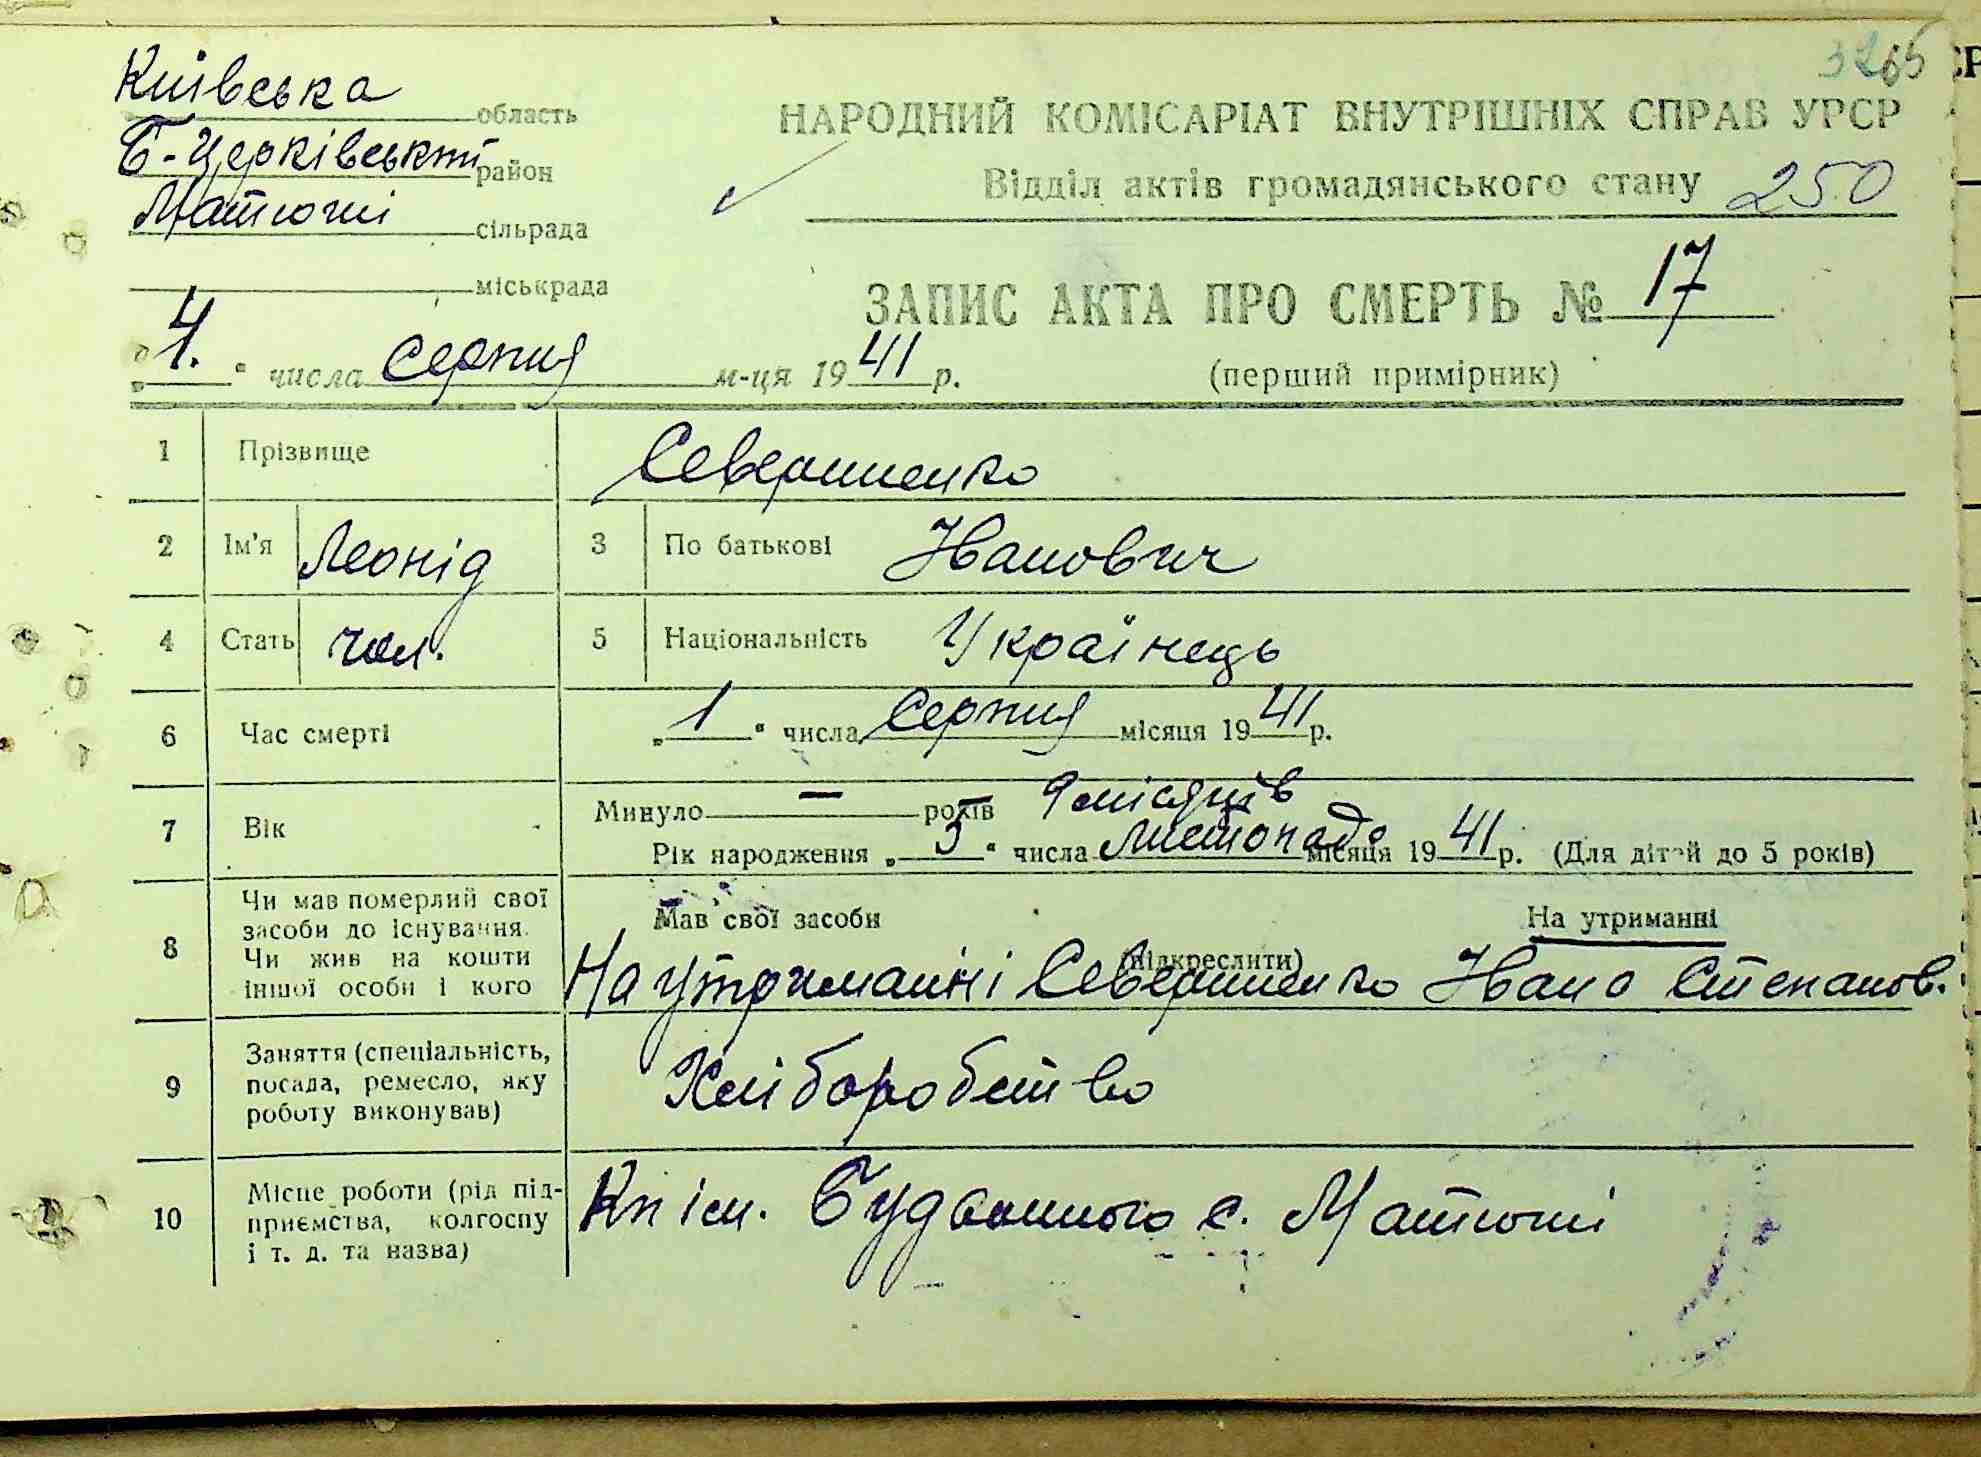 Київська область
Б-Церківський район
Матюші сільрада
міськрада
НАРОДНИЙ КОМІСАРІАТ ВНУТРІШНІХ СПРАВ УРСР
Відділ актів громадянського стану 250
ЗАПИС АКТА ПРО СМЕРТЬ № 17
(перший примірник)
„4." числа Серпня м-ця 1941 р.
1 Прізвище Севериненко
2 Ім'я Леонід 3 По батькові Іванович
4 Стать чол. 5 Національність Українець
6 Час смерті „1" числа Серпня місяця 1941 р.
7 Вік Минуло — років 9 місяців
Рік народження „5" числа Листопада місяця 1941 р. (Для дітей до 5 років)
8 Чи мав померлий свої засоби до існування. Чи жив на кошти іншої особи і кого
Мав свої засоби На утриманні
(підкреслити)
На утриманні Севериненко Івана Степанов.
9 Заняття (спеціальність, посада, ремесло, яку роботу виконував) Хліборобство
10 Місце роботи (рід підприємства, колгоспу і т. д. та назва) Кп ім. Будьонного с. Матюші